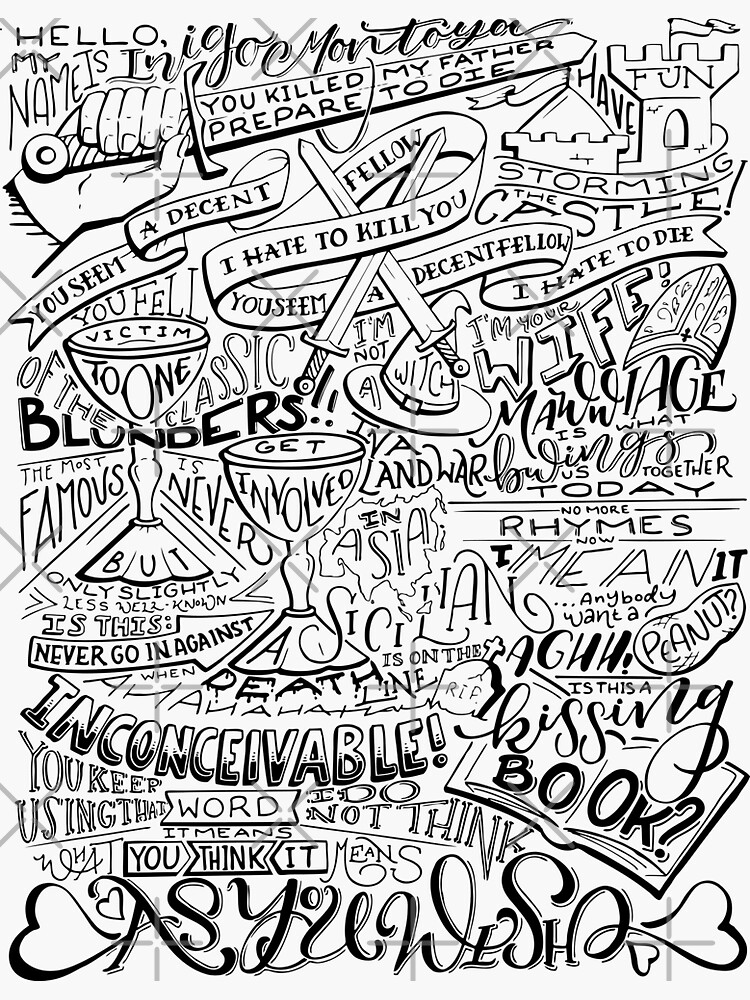 HELLO,
MY
NAME IS Inigo Montoya
YOU KILLED MY FATHER
PREPARE TO DIE
HAVE FUN
STORMING
THE
CASTLE!
YOU SEEM A DECENT FELLOW
I HATE TO KILL YOU
YOU SEEM A DECENT FELLOW
I HATE TO DIE
YOU FELL
VICTIM
TO ONE
OF THE CLASSIC
BLUNDERS!!
I'M
NOT
A WITCH
I'M YOUR
WIFE!
MAWWIAGE
IS WHAT
bwings
US TOGETHER
TODAY
THE MOST
FAMOUS IS NEVER
GET
INVOLVED
IN A
LAND WAR
IN
ASIA;
BUT
ONLY SLIGHTLY
LESS WELL-KNOWN
IS THIS:
NEVER GO IN AGAINST
A SICILIAN
WHEN DEATH
IS ON THE
LINE
R.I.P.
NO MORE
RHYMES
NOW
I MEAN IT
...Anybody
want a
PEANUT?
AGHH!
INCONCEIVABLE!
IS THIS A
kissing
BOOK?
YOU KEEP
US'ING THAT WORD
I DO
NOT THINK
IT MEANS
WHAT YOU THINK IT MEANS
AS YOU WISH